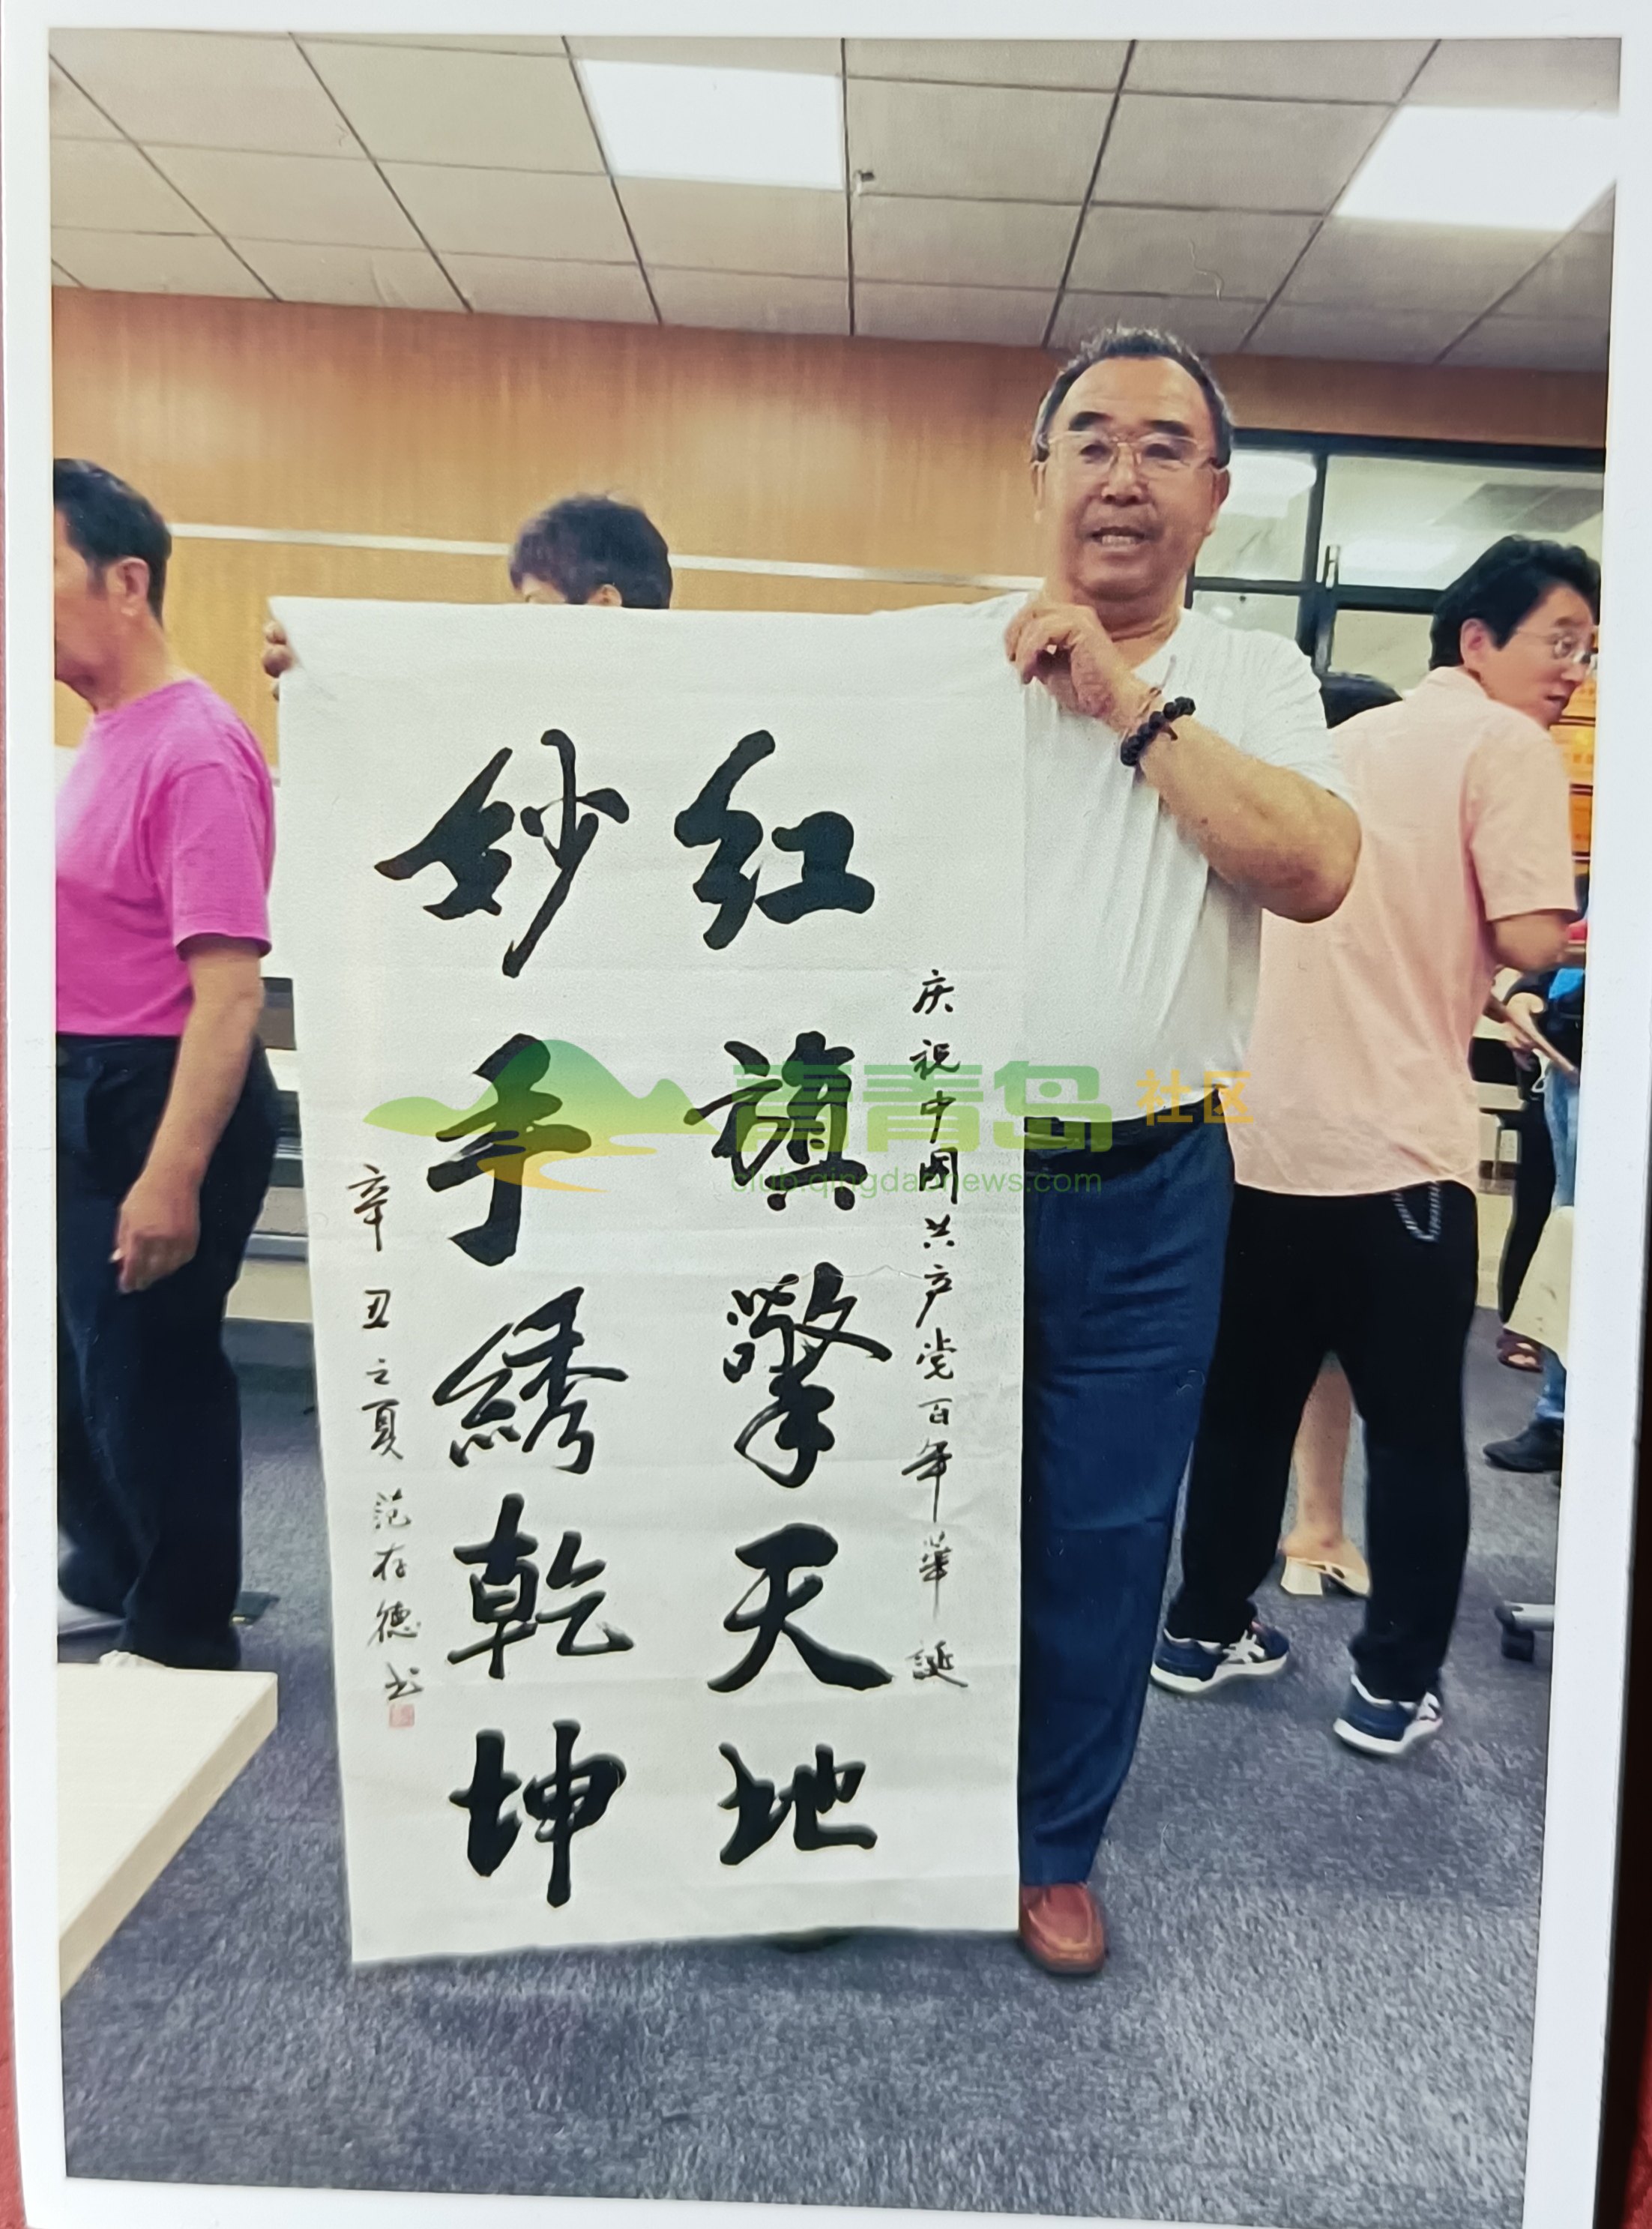 庆祝中国共产党百年华诞
红旗擎天地
妙手绣乾坤
辛丑之夏范存德书
青青岛社区
club.qingdaonews.com